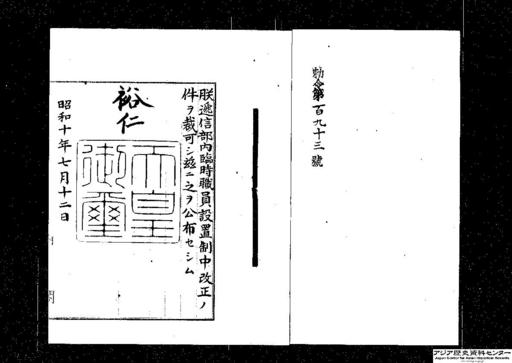 勅令第百九十三號
朕遞信部內臨時職員設置制中改正ノ
件ヲ裁可シ玆ニ之ヲ公布セシム
裕仁
天皇
御璽
昭和十年七月十二日
アジア歴史資料センター
Japan Center for Asian Historical Records